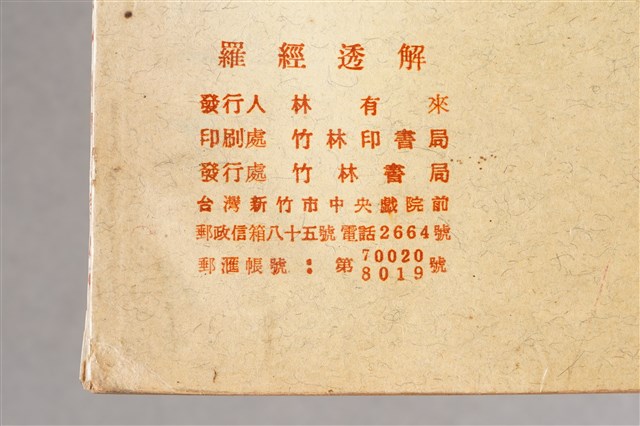 羅經透解
發行人 林有來
印刷處 竹林印書局
發行處 竹林書局
台灣新竹市中央戲院前
郵政信箱八十五號電話2664號
郵滙帳號：第70020 8019號